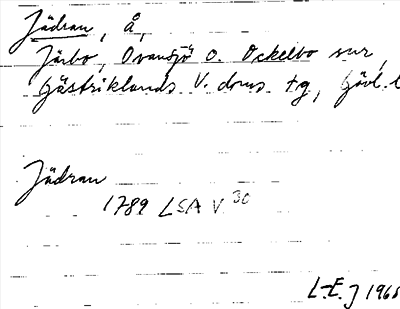 Jädran, å,
Järbo, Ovansjö o. Ockelbo snr,
Gästriklands V. doms. tg, Gävl. l
Jädran
1789 LSA V 30
L-E. J 1968